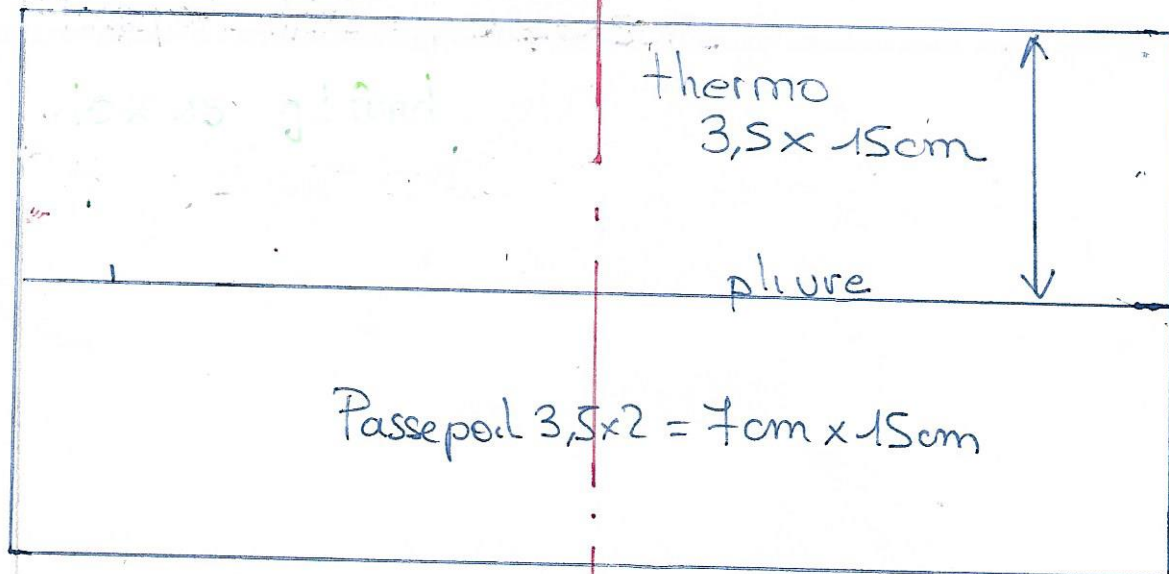 thermo
3,5 x 15cm
pliure
Passepoil 3,5x2 = 7cm x 15cm